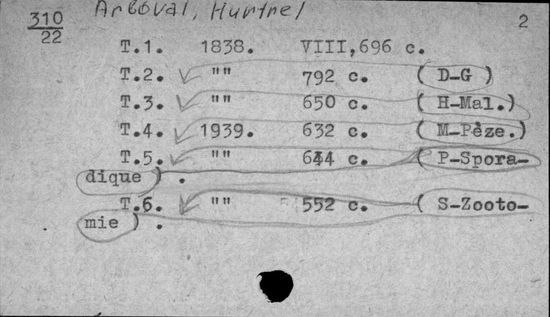 Arboval, Hurtrel
310
22
2
T.1. 1838. VIII,696 c.
T.2. "" 792 c. ( D-G )
T.3. "" 650 c. ( H-Mal.)
T.4. 1939. 632 c. ( M-Pèze.)
T.5. "" 644 c. ( P-Spora-
dique ) .
T.6. "" 552 c. ( S-Zooto-
mie ) .